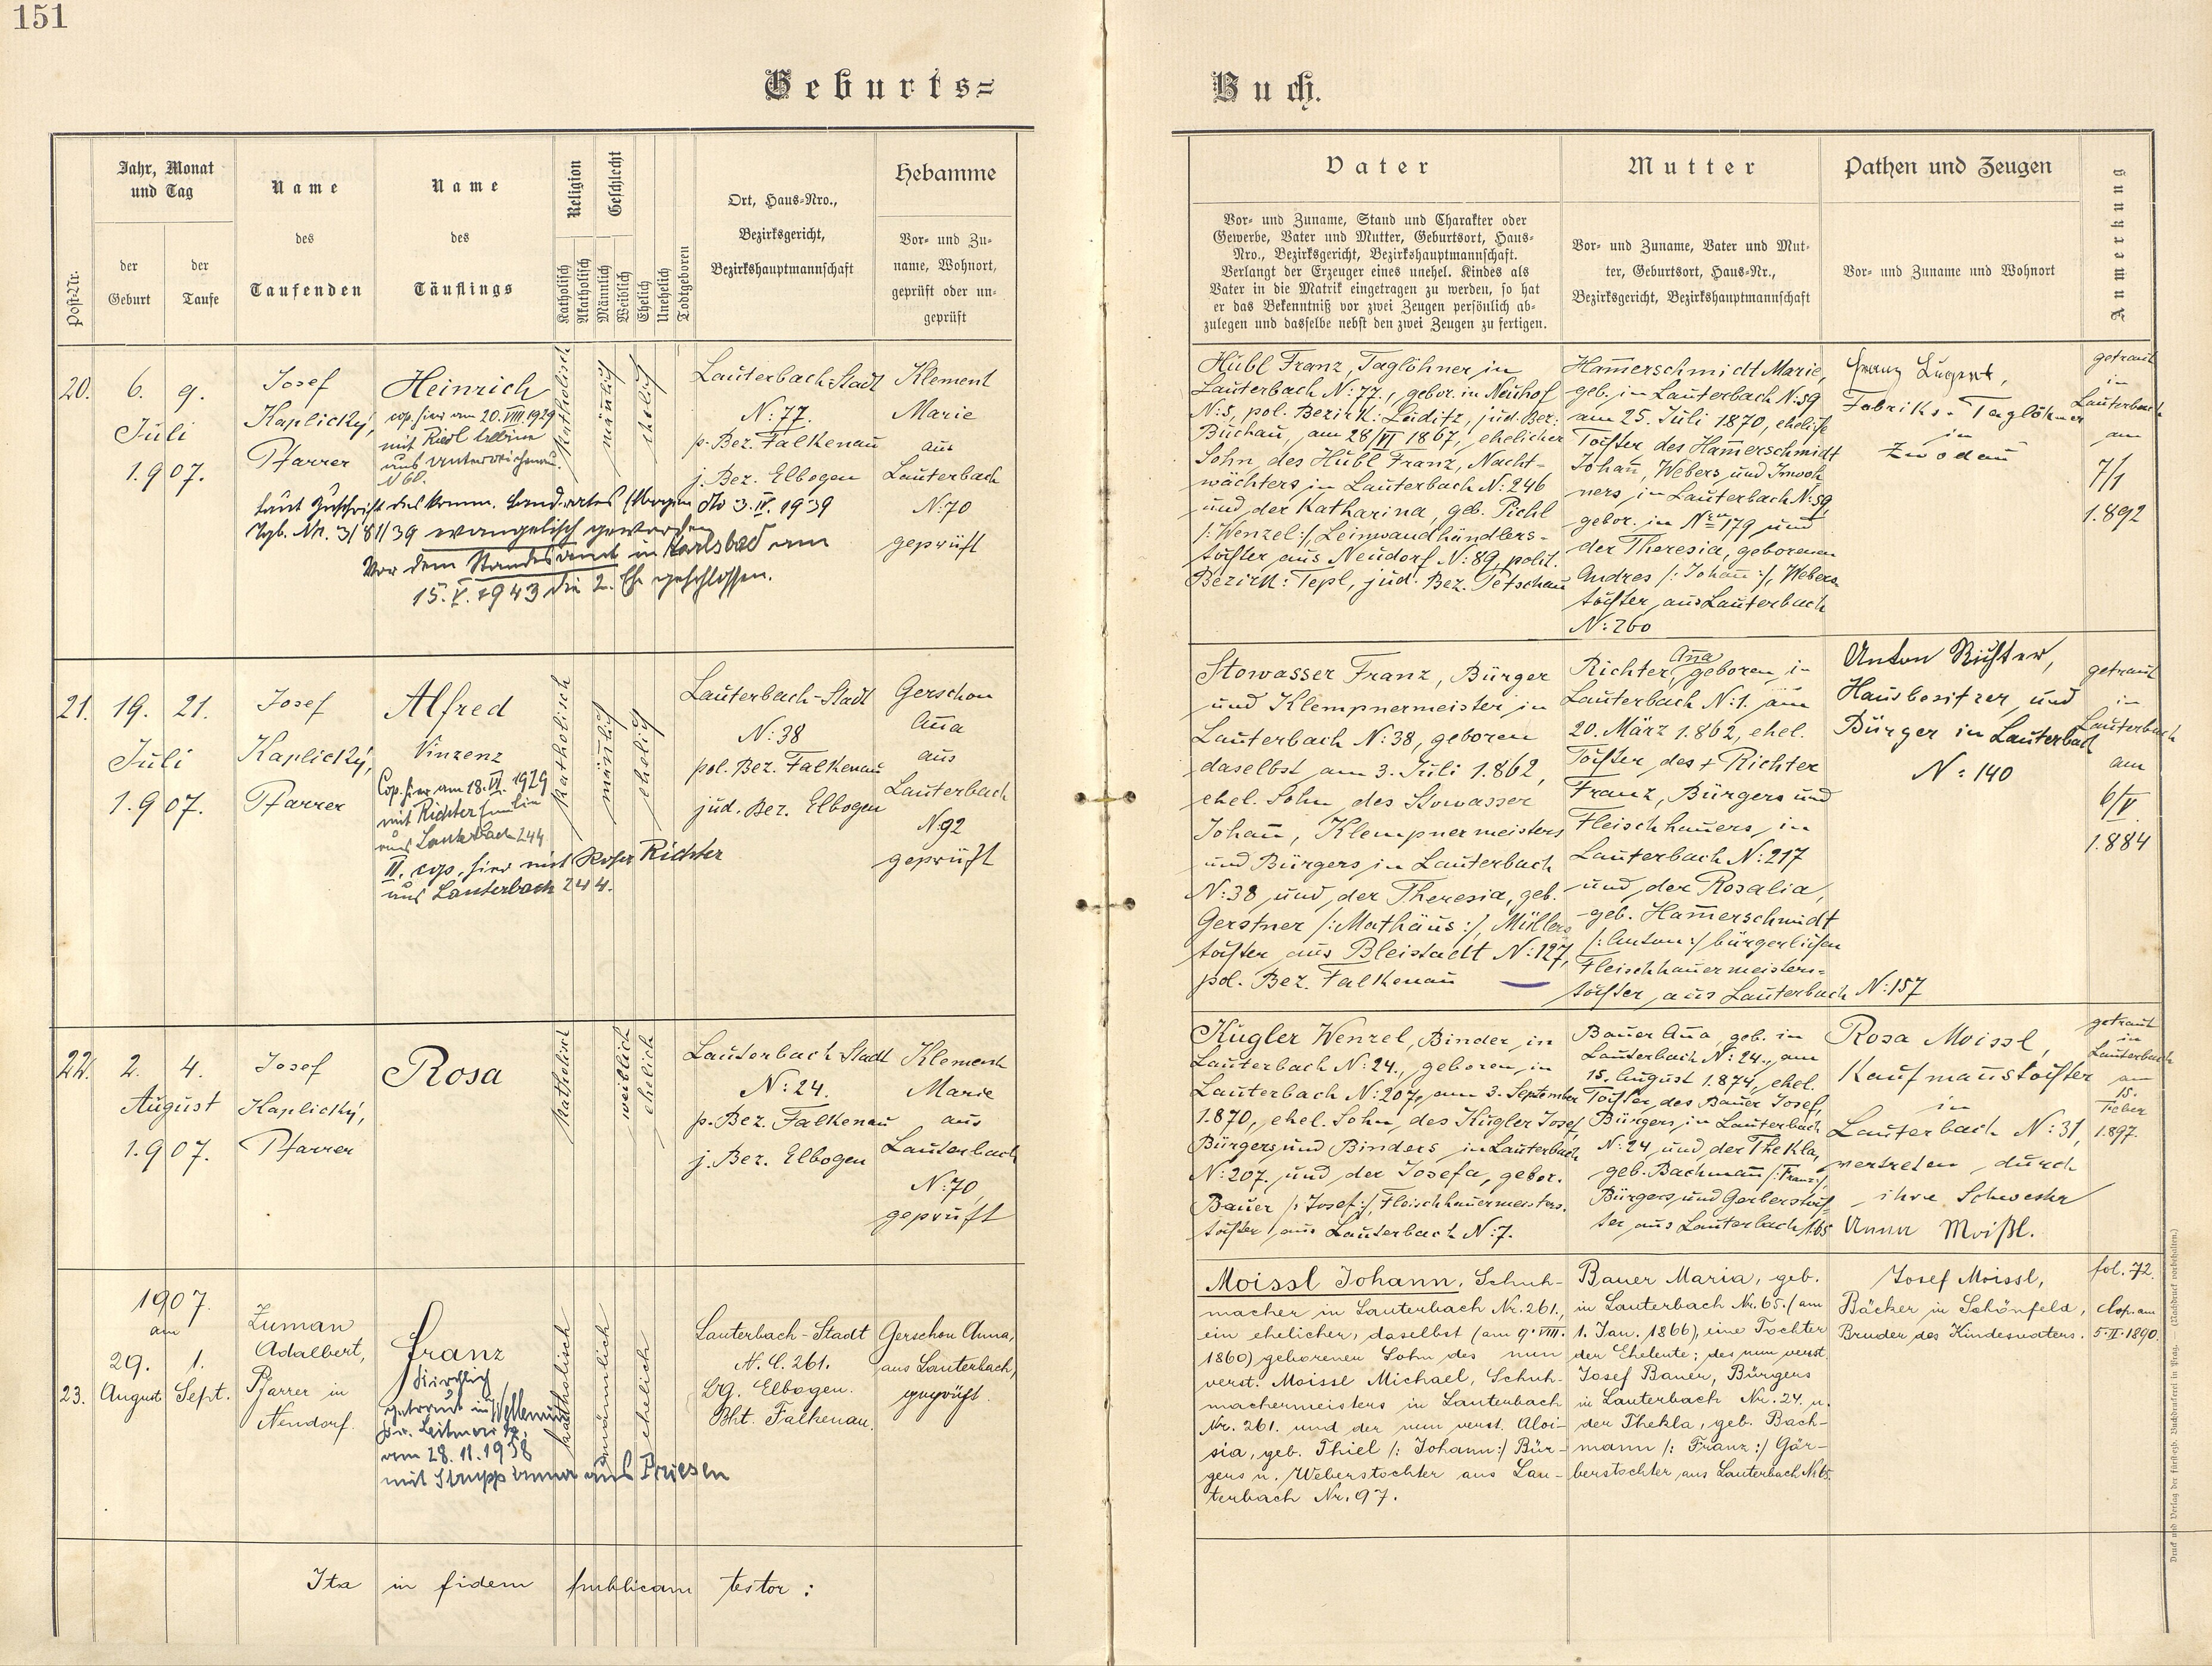 151
Geburts=
Buch.
Post-Nr.
Jahr, Monat
und Tag
der
Geburt
der
Taufe
Name
des
Taufenden
Name
des
Täuflings
Religion
Katholisch
Akatholisch
Geschlecht
Männlich
Weiblich
Ehelich
Unehelich
Todtgeboren
Ort, Haus=Nro.,
Bezirksgericht,
Bezirkshauptmannschaft
Hebamme
Vor= und Zu=
name, Wohnort,
geprüft oder un=
geprüft
Vater
Vor= und Zuname, Stand und Charakter oder
Gewerbe, Vater und Mutter, Geburtsort, Haus=
Nro., Bezirksgericht, Bezirkshauptmannschaft.
Verlangt der Erzeuger eines unehel. Kindes als
Vater in die Matrik eingetragen zu werden, so hat
er das Bekenntniß vor zwei Zeugen persönlich ab=
zulegen und dasselbe nebst den zwei Zeugen zu fertigen.
Mutter
Vor= und Zuname, Vater und Mut=
ter, Geburtsort, Haus=Nr.,
Bezirksgericht, Bezirkshauptmannschaft
Pathen und Zeugen
Vor= und Zuname und Wohnort
Anmerkung
20.
6. 9.
Juli
1.907.
Josef
Kaplický,
Pfarrer
Heinrich
cop. hier am 20.VIII.1929
mit Riedl
aus Unterreichenau.
N 61.
laut Zuschrift des komm. Landrates Elbogen dto 3.IV.1939
Zgb. Nr. 3181/39 evangelisch geworden
Vor dem Standesamt in Karlsbad am
15.V.1943 die 2. Ehe geschlossen.
katholisch
männlich
ehelich
Lauterbach-Stadt
N: 77.
p. Bez. Falkenau
j. Bez. Elbogen
Klement
Marie
aus
Lauterbach
N: 70
geprüft
Hübl Franz, Taglöhner in
Lauterbach N: 77., gebor. in Neuhof
N: 5, pol. Bezirk: Luditz, jud. Bez:
Buchau, am 28/VI 1867, ehelicher
Sohn des Hübl Franz, Nacht-
wächters in Lauterbach N: 246
und der Katharina, geb. Pichl
/: Wenzel :/, Leinwandhändlers-
tochter aus Neudorf N: 89, polit.
Bezirk: Tepl, jud. Bez. Petschau
Ham̄erschmidt Marie,
geb. in Lauterbach N: 59
am 25. Juli 1870, eheliche
Tochter des Ham̄erschmidt
Johan̄, Webers und Inwoh
ners in Lauterbach N: 59,
gebor. in N: 179 und
der Theresia, geborenen
Andres /: Johan̄ :/, Webers-
tochter, aus Lauterbach
N: 260
Franz Lugert,
Fabriks-Taglöhner
in
Zwodau
getraut
in
Lauterbach
am
7/1
1.892
21.
19. 21.
Juli
1.907.
Josef
Kaplický,
Pfarrer
Alfred
Vinzenz
Cop. hier am 18.VI.1929
mit Richter Emilie
aus Lauterbach 244
II. cop. hier mit Rosa Richter
aus Lauterbach 244.
katholisch
män̄lich
ehelich
Lauterbach-Stadt
N: 38
pol. Bez. Falkenau
jud. Bez. Elbogen
Gerschon
An̄a
aus
Lauterbach
N: 92
geprüft
Stowasser Franz, Bürger
und Klempnermeister in
Lauterbach N: 38, geboren
daselbst am 3. Juli 1.862,
ehel. Sohn des Stowasser
Johan̄, Klempnermeisters
und Bürgers in Lauterbach
N: 38 und der Theresia, geb.
Gerstner /: Mathäus :/, Müllers
tochter aus Bleistadt N: 127,
pol. Bez. Falkenau
Richter An̄a, geboren in
Lauterbach N: 1. am
20. März 1.862, ehel.
Tochter des + Richter
Franz, Bürgers und
Fleischhauers in
Lauterbach N: 217
und der Rosalia,
geb. Ham̄erschmidt
/: Anton :/ bürgerlichen
Fleischhauermeisters=
tochter aus Lauterbach N: 157
Anton Richter,
Hausbesitzer und
Bürger in Lauterbach
N: 140
getraut
in
Lauterbach
am
6/V.
1.884
22.
2. 4.
August
1.907.
Josef
Kaplický,
Pfarrer
Rosa
katholisch
weiblich
ehelich
Lauterbach Stadt
N: 24.
p. Bez. Falkenau
j. Bez. Elbogen
Klement
Marie
aus
Lauterbach
N: 70,
geprüft
Kugler Wenzel, Binder in
Lauterbach N: 24., geboren in
Lauterbach N: 207, am 3. September
1.870, ehel. Sohn des Kugler Josef,
Bürgers und Binders in Lauterbach
N: 207. und der Josefa, gebor.
Bauer /: Josef :/, Fleischhauermeisters-
tochter aus Lauterbach N: 7.
Bauer An̄a, geb. in
Lauterbach N: 24., am
15. August 1.874, ehel.
Tochter des Bauer Josef,
Bürgers in Lauterbach
N: 24 und der Thekla,
geb. Bachman̄ /: Franz :/,
Bürgers und Gerberstoch
ter aus Lauterbach 165
Rosa Moissl,
Kaufman̄stochter
in
Lauterbach N: 31,
vertreten durch
ihre Schwester
Anna Moißl.
getraut
in
Lauterbach
am
15.
Feber
1.897.
23.
1907
am
29. 1.
August Sept.
Zuman
Adalbert,
Pfarrer in
Neudorf.
Franz
kirchlich
getraut in Wellemin
am 28.11.1938
mit Strupp Anna aus Priesen
katholisch
männlich
ehelich
Lauterbach-Stadt
N. C. 261.
Bg. Elbogen.
Bht. Falkenau.
Gerschon Anna,
aus Lauterbach,
geprüft.
Moissl Johann, Schuh-
macher in Lauterbach Nr. 261,
ein ehelicher, daselbst (am 9.VIII.
1860) geborenen Sohn des nun
verst. Moissl Michael, Schuh-
machermeisters in Lauterbach
Nr. 261. und der nun verst. Aloi-
sia, geb. Thiel /: Johann :/ Bür-
gers u. Weberstochter aus Lau-
terbach Nr. 97.
Bauer Maria, geb.
in Lauterbach Nr. 65. (am
1. Jan. 1866), eine Tochter
der Eheleute: des nun verst.
Josef Bauer, Bürgers
in Lauterbach Nr. 24. u.
der Thekla, geb. Bach-
mann /: Franz :/ Gär-
berstochter aus Lauterbach N. 165.
Josef Moissl,
Bäcker in Schönfeld,
Bruder des Kindesvaters.
fol. 72.
Cop. am
5.II.1890.
Ita in fidem publicam testor:
Druck und Verlag der fürsterzb. Buchdruckerei in Prag. — (Nachdruck vorbehalten.)